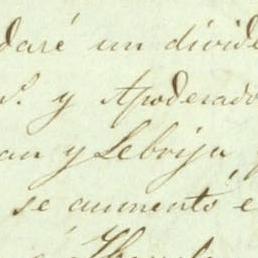 daré un divide
S. y Apoderado
an y Lebrija
se aumentó e